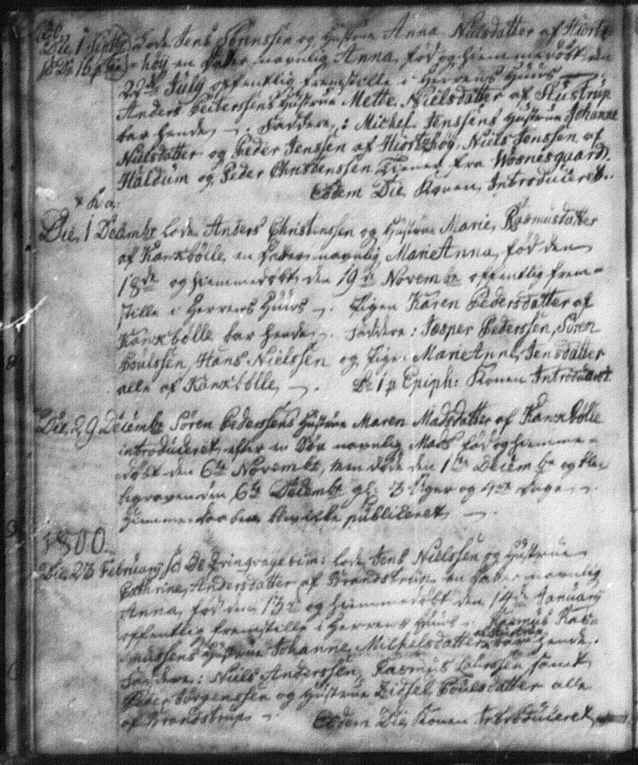 Die 1 Septb: Lode Jens Sörenssen og Hustrue Anna Nielsdatter af Hiorts
höy en datter, navnlig Anna, föd og hiemmedöbt den
29de July offentlig fremstille i Herrens Huus
Anders Peitersens Hustrue Mette Nielsdatter af
bar hende. Faddere: Michel Jenssens Hustrue Johanne
Nielsdatter og Peder Jenssen af Hiortshöy, Niels Jenssen af
Haldum og Peder Christenssen Tienend fra Wosnesgaard.
Eodem Die Konen Introduceret.
Die 1 Decembr Lode Anders Christenssen og Hustrue Marie Rasmusdatter
af Kankbölle en Datter navnlig MarieAnna, föd den
18de og hiemmedöbt den 19de Novembr offentlig frem-
stille i Herrens Huus. Pigen Karen Pedersdatter af
Kankbölle bar hende. Faddere: Jesper Pederssen, Sören
Poulssen, Hans Nielssen og Pige: MarieAnne Jensdatter
alle af Kankbölle. D: 1 p Epiph: Konen Introduceret.
Die 29 Decembr Sören Pederssens Hustrue Maren Madsdatter af Kankbölle
introduceret efter en Sön navnlig Mads föd og hiemme-
döbt den 6te Novembr, men döde den 1te Decembr og blev
begraven den 6te Decembr gl: 3 Uger og 4re Dage.
Hiemmedaaben blev ikke publiceret.
1800.
Die 23 February lode Jens Nielssen og Hustrue
Cathrine Andersdatter af Brandstrup en Datter navnlig
Anna, föd den 13de og hiemmedöbt den 14de January
offentlig fremstille i Herrens Huus. Rasmus Ras-
mussens Hustrue Johanne Mickelsdatter bar hende.
Faddere: Niels Anderssen, Rasmus Laurssen
Peder Sörgenssen og Hustrue Sidsel Poulsdatter alle
af Brandstrup. Eodem Die Konen Introduceret